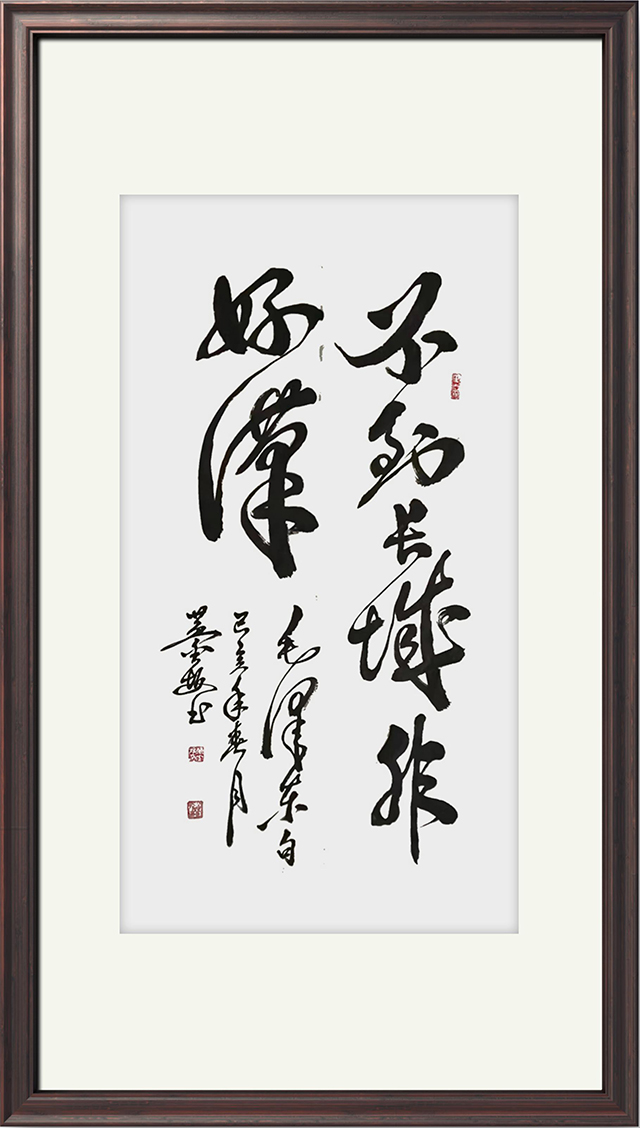 不到长城非
好漢
毛泽东句
己亥年春月
书